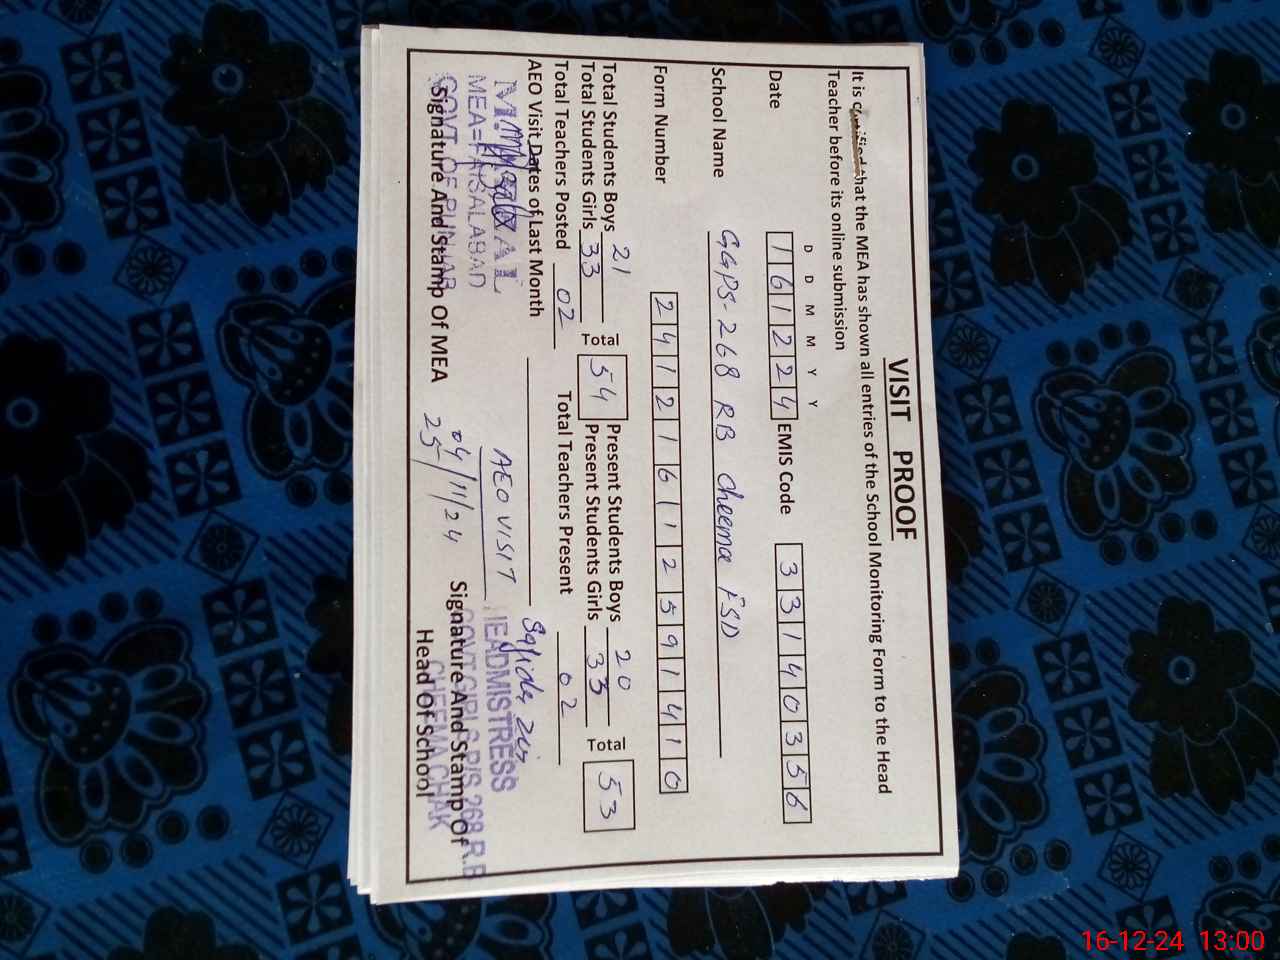 VISIT PROOF
It is certified that the MEA has shown all entries of the School Monitoring Form to the Head
Teacher before its online submission
D D M M Y Y
Date 161224 EMIS Code 33140356
School Name GGPS-268 RB Cheema FSD
Form Number 24121612591410
Total Students Boys 21 Total 54 Present Students Boys 20 Total 53
Total Students Girls 33 Present Students Girls 33
Total Teachers Posted 02 Total Teachers Present 02
AEO Visit Dates of Last Month
AEO VISIT
04/11/24
25/
MEA=FAISALABAD
GOVT OF PUNJAB
Signature And Stamp Of MEA
HEADMISTRESS
GOVT GIRLS P/S 268 R.B
CHEEMA CHAK
Signature And Stamp Of
Head Of School
16-12-24 13:00